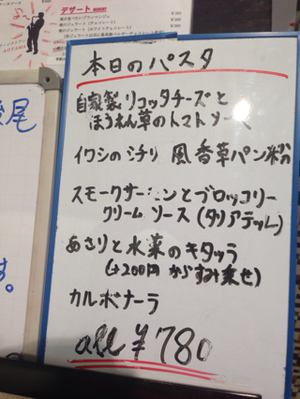 デザート
本日のパスタ
自家製リコッタチーズと
ほうれん草のトマトソース
イワシのシチリ 風香草パン粉
スモークサーモンとブロッコリー
クリームソース(タリアテッレ)
あさりと水菜のキタッラ
(+200円からすみ乗せ)
カルボナーラ
all ¥780
尾
す。